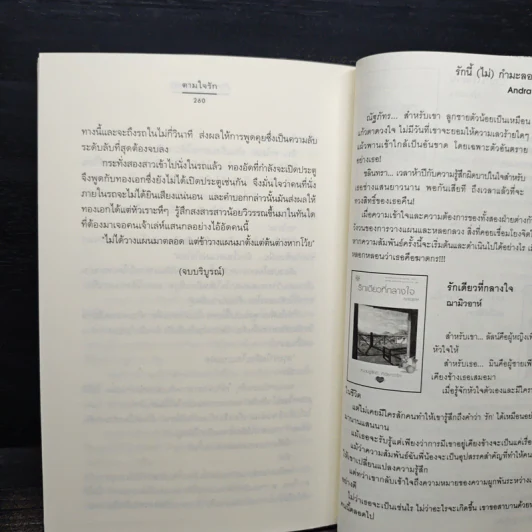 ตามใจรัก
260
ทางนี้และจะถึงรถในไม่กี่วินาที ส่งผลให้การพูดคุยซึ่งเป็นความลับ
ระดับลับที่สุดต้องจบลง
กระทั่งสองสาวเข้าไปนั่งในรถแล้ว ทองอัดที่กำลังจะเปิดประตู
จึงพูดกับทองเอกซึ่งยังไม่ได้เปิดประตูเช่นกัน จึงมั่นใจว่าคนที่นั่ง
ภายในรถจะไม่ได้ยินเสียงแน่นอน และคำบอกกล่าวนั้นส่งผลให้
ทองเอกได้แต่หัวเราะหึๆ รู้สึกสงสารสาวน้อยวิวรรณขึ้นมาในทันใด
ที่ต้องมาเจอคนเจ้าเล่ห์แสนกลอย่างไอ้อัดคนนี้
'ไม่ได้วางแผนมาตลอด แต่ข้าวางแผนมาตั้งแต่ต้นต่างหากโว้ย'
(จบบริบูรณ์)
รักนี้ (ไม่) กำมะลอ
Andra
ณัฐภัทร... สำหรับเขา ลูกชายตัวน้อยเป็นเหมือน
แก้วตาดวงใจ ไม่มีวันที่เขาจะยอมให้ความเลวร้ายใดๆ
แผ้วพานเข้าใกล้เป็นอันขาด โดยเฉพาะตัวอันตราย
อย่างเธอ!
ชลินทรา... เวลาห้าปีกับความรู้สึกผิดบาปในใจสำหรับ
เธอช่างแสนยาวนาน พอกันเสียที ถึงเวลาแล้วที่จะ
ทวงสิทธิ์ของเธอคืน
เมื่อความเข้าใจและความต้องการของทั้งสองฝ่ายต่างกัน
การวางแผนและหลอกลวง สิ่งที่คอยเชื่อมโยง
ความสัมพันธ์ครั้งนี้จะเริ่มต้นและดำเนินไปได้อย่างไร
หลอกหลอนว่าเธอคือฆาตกร!!!
รักเดียวที่กลางใจ
ฌามิวอาห์
รักเดียวที่กลางใจ
สำหรับเขา... ลัลน์คือผู้หญิง
หัวใจให้
สำหรับเธอ... มีนคือผู้ชาย
เคียงข้างเธอเสมอมา
เมื่อรู้จักหัวใจตัวเองและมีใคร
แต่ไม่เคยมีใครสักคนทำให้เขารู้สึกถึงคำว่า 'รัก' ได้เหมือน
นานแสนนาน
แม้เธอจะรับรู้แค่เพียงว่าการมีเขาอยู่เคียงข้างจะเป็นแค่
แม้ว่าความสัมพันธ์ฉันพี่น้องจะเป็นอุปสรรคสำคัญที่ทำให้
เขาเปลี่ยนแปลงความรู้สึก
แต่หากเขากลับเข้าใจถึงความหมายของความผูกพันระหว่าง
ไม่ว่าเธอจะเป็นเช่นไร ไม่ว่าอะไรจะเกิดขึ้น เขาขอสาบาน